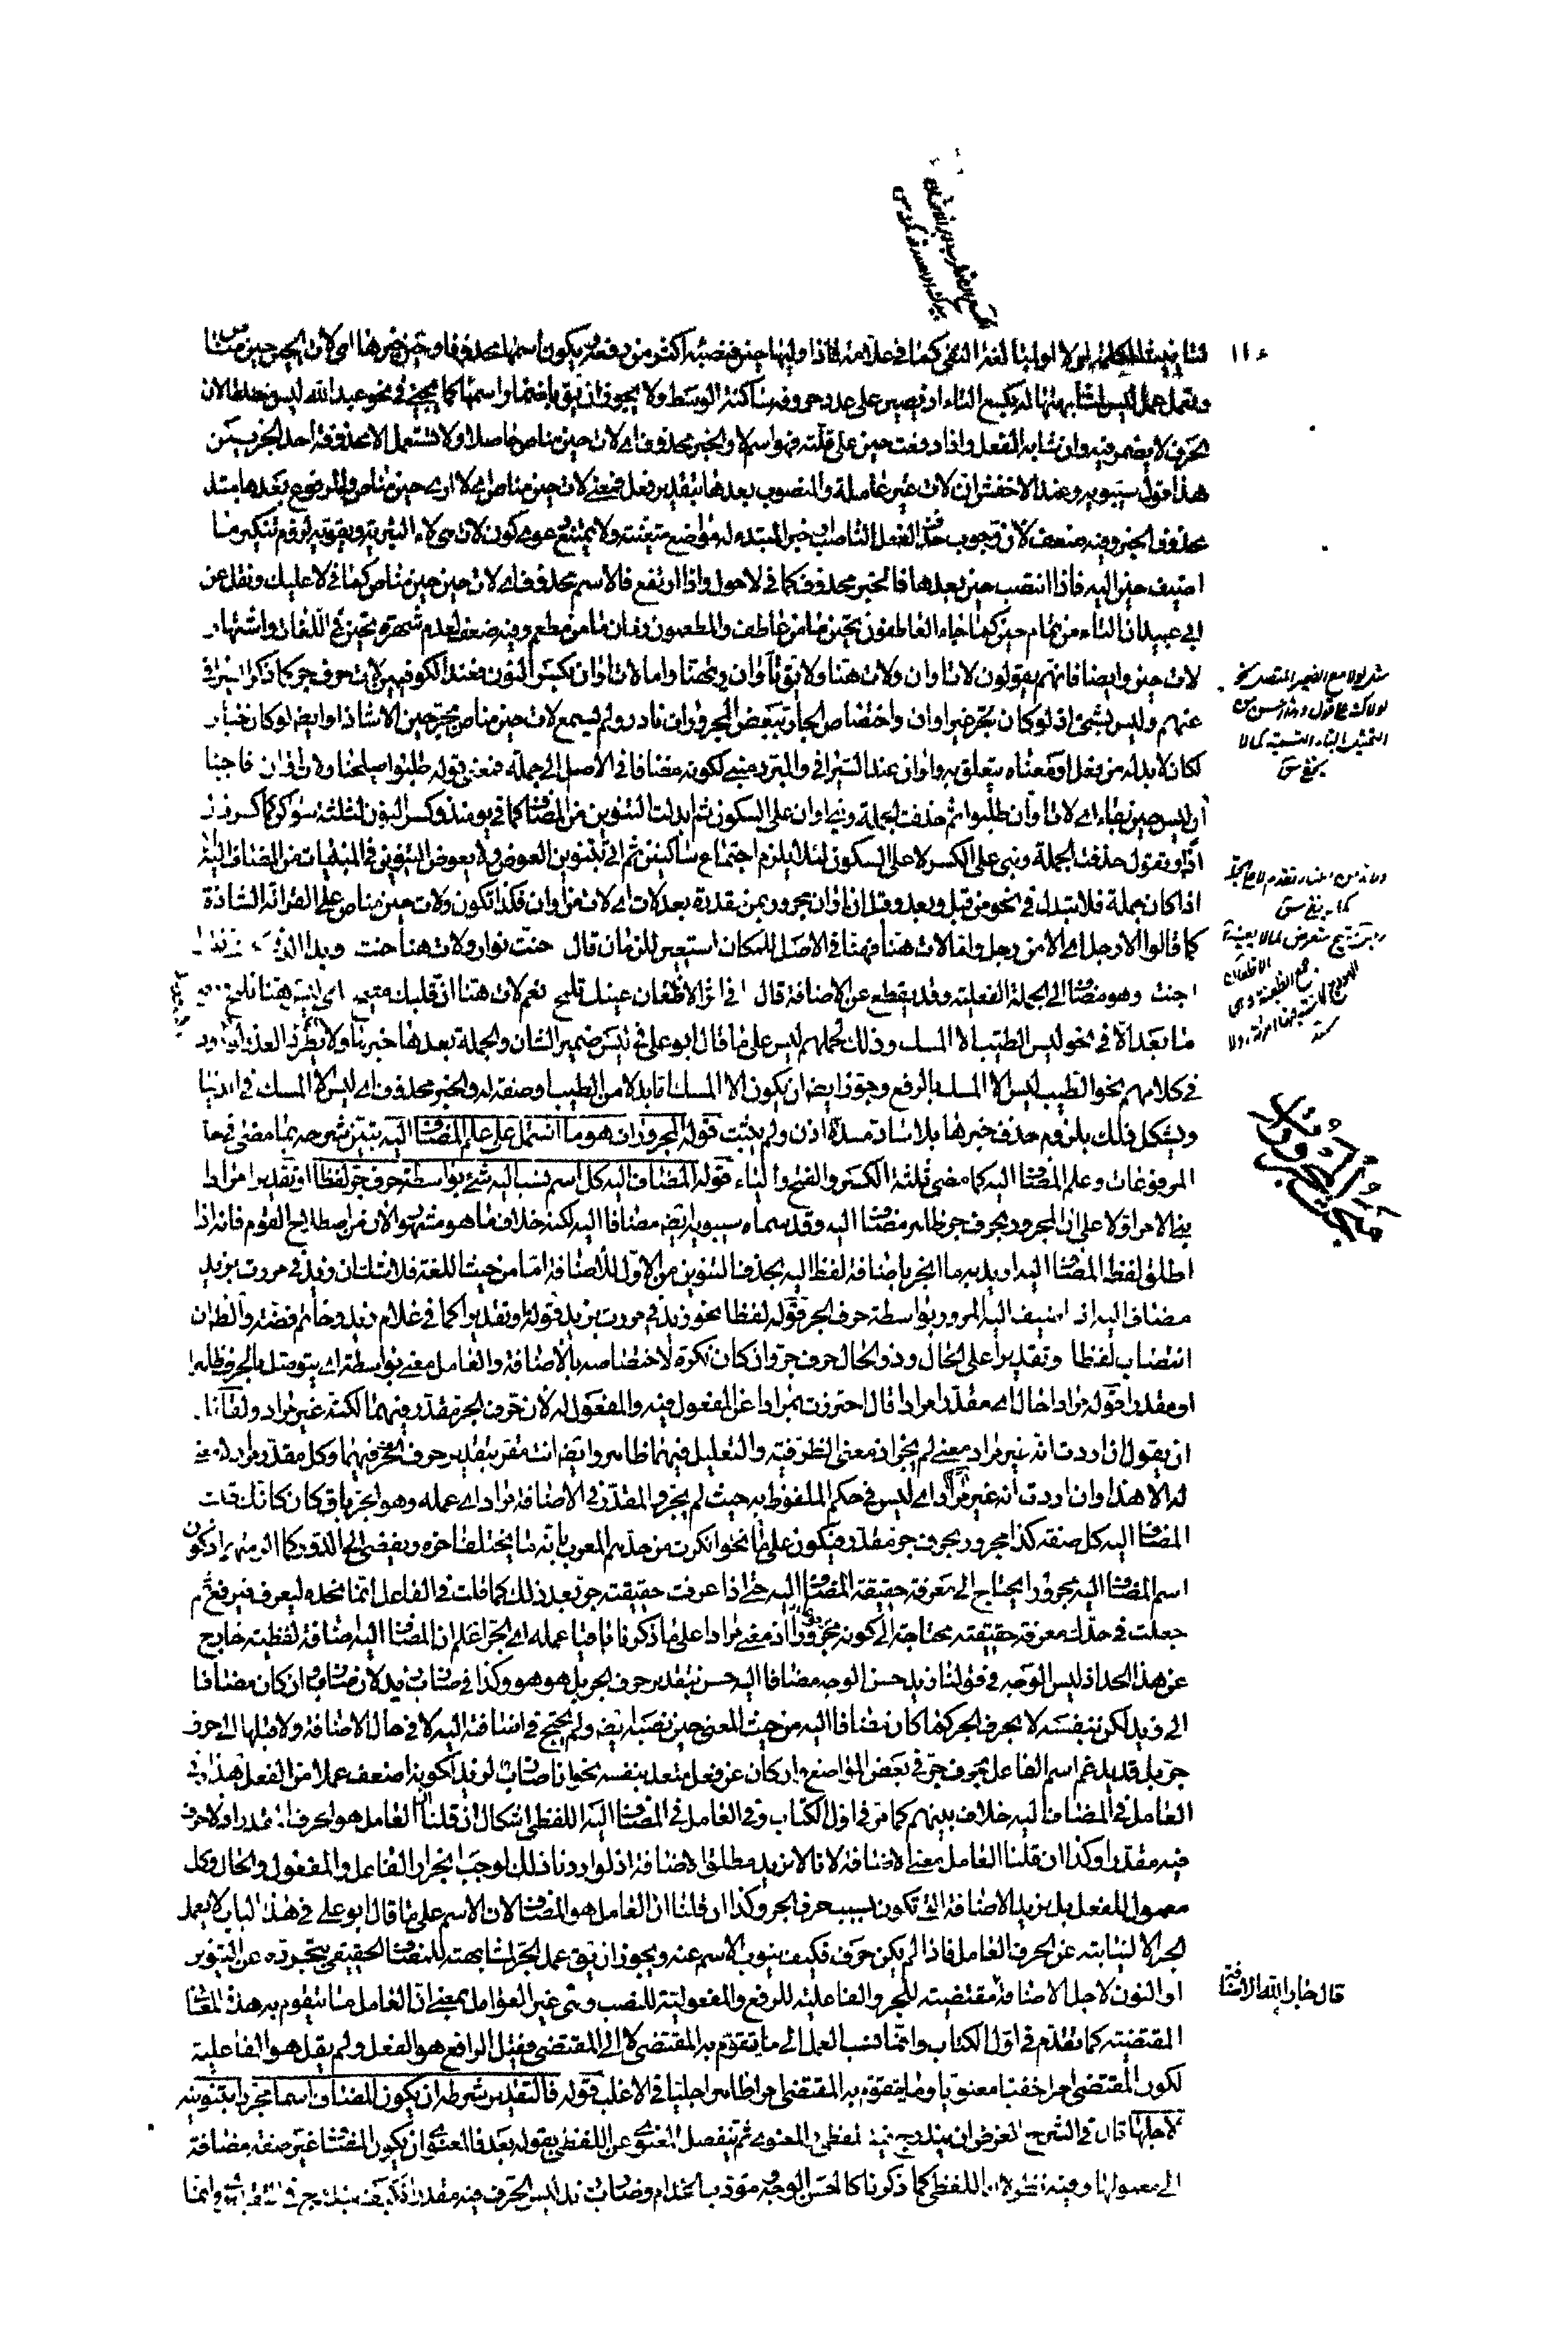 لتأنيث الكلمة اى لا او لمبالغة النفى كما فى علامة فاذا وليها حين فنصبه اكثر من رفعه ويكون اسمها محذوفا وحين خبرها اى لات الحين حين مناص
وتعمل عمل ليس لمشابهتها له بكسع التاء اذ تصير على عدد حروفه ساكنة الوسط ولا يجوز ان يق باضمار اسمها كما يجئ فى نحو عبد الله ليس منطلقا لان
الحرف لا يضمر فيه وان شابه الفعل واذا رفعت حين على قلته فهو اسم لا والخبر محذوف اى لات حين مناص حاصلا ولا تستعمل الا محذوفة احد الجزئين
هذا قول سيبويه وعند الاخفش ان لات غير عاملة والمنصوب بعدها بتقدير فعل فمعنى لات حين مناص اى لا ارى حين مناص والمرفوع بعدها مبتدا
محذوف الخبر وفيه ضعف لان وجوب حذف الفعل الناصب او خبر المبتدا له مواضع متعينة ولا يمتنع دعوى كون لات هى لاء التبرية ويقويه لزوم تنكير ما
اضيف حين اليه فاذا انتصب حين بعدها فالخبر محذوف كما فى لا حول واذا ارتفع فالاسم محذوف اى لات حين حين مناص كما فى لا عليك ونقل عن
ابى عبيد ان التاء من تمام حين كما جاء العاطفون تحين ما من عاطف والمطعمون زمان ما من مطعم وفيه ضعف لعدم شهرة تحين فى اللغات واشتهار
لات حين وايضا فانهم يقولون لات اوان ولات هنا ولا يق تأوان وتهنا واما لات اوان بكسر النون فعند الكوفيين لات حرف جر كما ذكر السيرافى
عنهم وليس بشئ اذ لو كان لجر غير اوان واختصاص الجار ببعض المجرورات نادر ولم يسمع لات حين مناص بجر حين الا شاذا وايضا لو كان جارا
لكان لا بد له من فعل او معناه يتعلق به واوان عند السيرافى والمبرد مبنى لكونه مضافا فى الاصل الى جملة فمعنى قوله طلبوا صلحنا ولات اوان فاجبنا
ان ليس حين بقاء اى لات اوان طلبوا ثم حذفت الجملة وبنى اوان على السكون ثم ابدلت التنوين من المضاف كما فى يومئذ وكسر النون لالتقاء سوكن كما كسر ذال
اذ او تقول حذفت الجملة وبنى على الكسر لا على السكون لئلا يلزم اجتماع ساكنين ثم اتى بتنوين العوض ولا يعوض التنوين فى المبنيات من المضاف اليه
اذا كان جملة فلا تبدل فى نحو من قبل وبعد وقيل ان اوان مجرور بمن مقدرة بعد لات اى لات من اوان فكذا تكون ولات حين مناص على القراءة الشاذة
كما قالوا الا رجل اى الا من رجل واما لات هنا فهنا فى الاصل للمكان استعير للزمان قال حنت نوار ولات هنا حنت وبدا الذى
اجنت وهو مضاف الى الجملة الفعلية وقد يقطع عن الاضافة قال افى اثر الاظعان عينك تلمح نعم لات هنا ان قلبك متيح اى ليس هنا تلمح
ما بعد الا فى نحو ليس الطيب الا المسك وذلك لحملهم ليس على ما قال ابو على فى ليس ضمير الشان والجملة بعدها خبرها ولا يطرد
فى كلامهم نحو الطيب ليس الا المسك بالرفع وجوز ايضا ان يكون الا المسك اما بدلا من الطيب او صفة له والخبر محذوف اى ليس الا المسك فى الدنيا
ويشكل ذلك بلزوم حذف خبرها بلا ساد مسده اذن ولم يثبت قوله المجرورات هو ما اشتمل على علم المضاف اليه تبين شرحه بما مضى فى حد
المرفوعات وعلم المضاف اليه كما مضى ثلثة الكسر والفتح والياء قوله المضاف اليه كل اسم نسب اليه شئ بواسطة حرف جر لفظا او تقديرا مرادا
بنى الامر اولا على ان المجرور بحرف جر ظاهر مضاف اليه وقد سماه سيبويه ايضا مضافا اليه لكنه خلاف ما هو مشهور الان من اصطلاح القوم فانه اذا
اطلق لفظ المضاف اليه اريد به ما انجر باضافة لفظ اليه بحذف التنوين من الاول للاضافة اما من حيث اللغة فلا شك ان زيد فى مررت بزيد
مضاف اليه اذ اضيف اليه المرور بواسطة حرف الجر قوله لفظا نحو زيد فى مررت بزيد قوله او تقديرا كما فى غلام زيد وخاتم فضة والظاهر ان
انتصاب لفظا وتقديرا على الحال وذو الحال حرف جر وان كان نكرة لاختصاصه بالاضافة والعامل معنى بواسطة اى يتوصل بالحرف ظاهرا
او مقدرا قوله مرادا حال اى مقدرا مرادا قال احترزت بمرادا عن المفعول فيه والمفعول له لان حرف الجر مقدر فيهما لكنه غير مراد ولقائل
ان يقول ان اردت انه غير مراد معنى لم يجز اذ معنى الظرفية والتعليل فيهما ظاهر وايضا انت مقر بتقدير حرف الجر فيهما وكل مقدر مراد لا معنى
له الا هذا وان اردت انه غير مراد اى ليس فى حكم الملفوظ به حيث لم يجر والمقدر فى الاضافة مراد اى عمله وهو الجر باق كان كانك قلت
المضاف اليه كل صفة كذا مجرور بحرف جر مقدر فيكون على ما نحو انكرت من حدهم المعرب بانه ما يختلف اخره ويفضى الى الدور كما الزمتهم اذ كون
اسم المضاف اليه مجرورا يحتاج الى معرفة حقيقة المضاف اليه حتى اذا عرفت حقيقته جر بعد ذلك كما قلت فى الفاعل انما نحده ليعرف فيرفع ثم
جعلت فى حدك معرفة حقيقته محتاجة الى كونه مجرورا اذ معنى مرادا على ما ذكرنا باقيا عمله اى الجر اعلم ان المضاف اليه اضافة لفظية خارج
عن هذا الحد اذ ليس الوجه فى قولنا زيد حسن الوجه مضافا اليه حسن بتقدير حرف الجر بل هو هو وكذا فى ضارب زيد لان ضارب ان كان مضافا
الى زيد لكن بنفسه لا بحرف الجر كما كان مضافا اليه من حيث المعنى حين نصبه ايضا ولم يحتج فى اضافته اليه لا فى حال الاضافة ولا قبلها الى حرف
جر بل قد يدعم اسم الفاعل بحرف جر فى بعض المواضع وان كان عن فعل متعد بنفسه نحو انا ضارب لزيد لكونه اضعف عملا من الفعل
العامل فى المضاف اليه خلاف بينهم كما مر فى اول الكتاب وفى العامل فى المضاف اليه اللفظى اشكال ان قلنا ان العامل هو الحرف المقدر اذ لا حرف
فيه مقدرا وكذا ان قلنا العامل معنى الاضافة لانا لا نريد مطلق الاضافة اذ لو اردنا ذلك لوجب انجرار الفاعل والمفعول والحال وكل
معمول للفعل بل نريد الاضافة التى تكون بسبب حرف الجر وكذا ان قلنا ان العامل هو المضاف لان الاسم على ما قال ابو على فى هذا الباب لا يعمل
الجر الا لنيابته عن الحرف العامل فاذا لم يكن حرف فكيف ينوب الاسم عنه ويجوز ان يق عمل الجر لمشابهته للمضاف الحقيقى بتجرده عن التنوين
او النون لاجل الاضافة مقتضية للجر والفاعلية للرفع والمفعولية للنصب وهى غير العوامل بمعنى اذ العامل ما يتقوم به هذه المعانى
المقتضية كما تقدم فى اول الكتاب وانما نسب العمل الى ما يتقوم به المقتضى لا الى المقتضى فقيل الرافع هو الفعل ولم يقل هو الفاعلية
لكون المقتضى امرا خفيا معنويا وما يتقوم به المقتضى امرا ظاهرا جليا فى الاغلب قوله فالتقدير شرطه ان يكون المضاف اسما مجردا بتنوينه
لاجلها قال فى الشرح الغرض ان يندرج فيه لفظى والمعنوى ثم تنفصل المعنوى عن اللفظى بقوله بعد فالمعنوى ان يكون المضاف غير صفة مضافة
الى معمولها وفيه نظر لان اللفظى كما ذكرنا كالحسن الوجه ومؤدب الخدام وضارب زيد ليس الحرف فيه مقدرا فكيف يندرج وانما
قال جار الله الاضافة